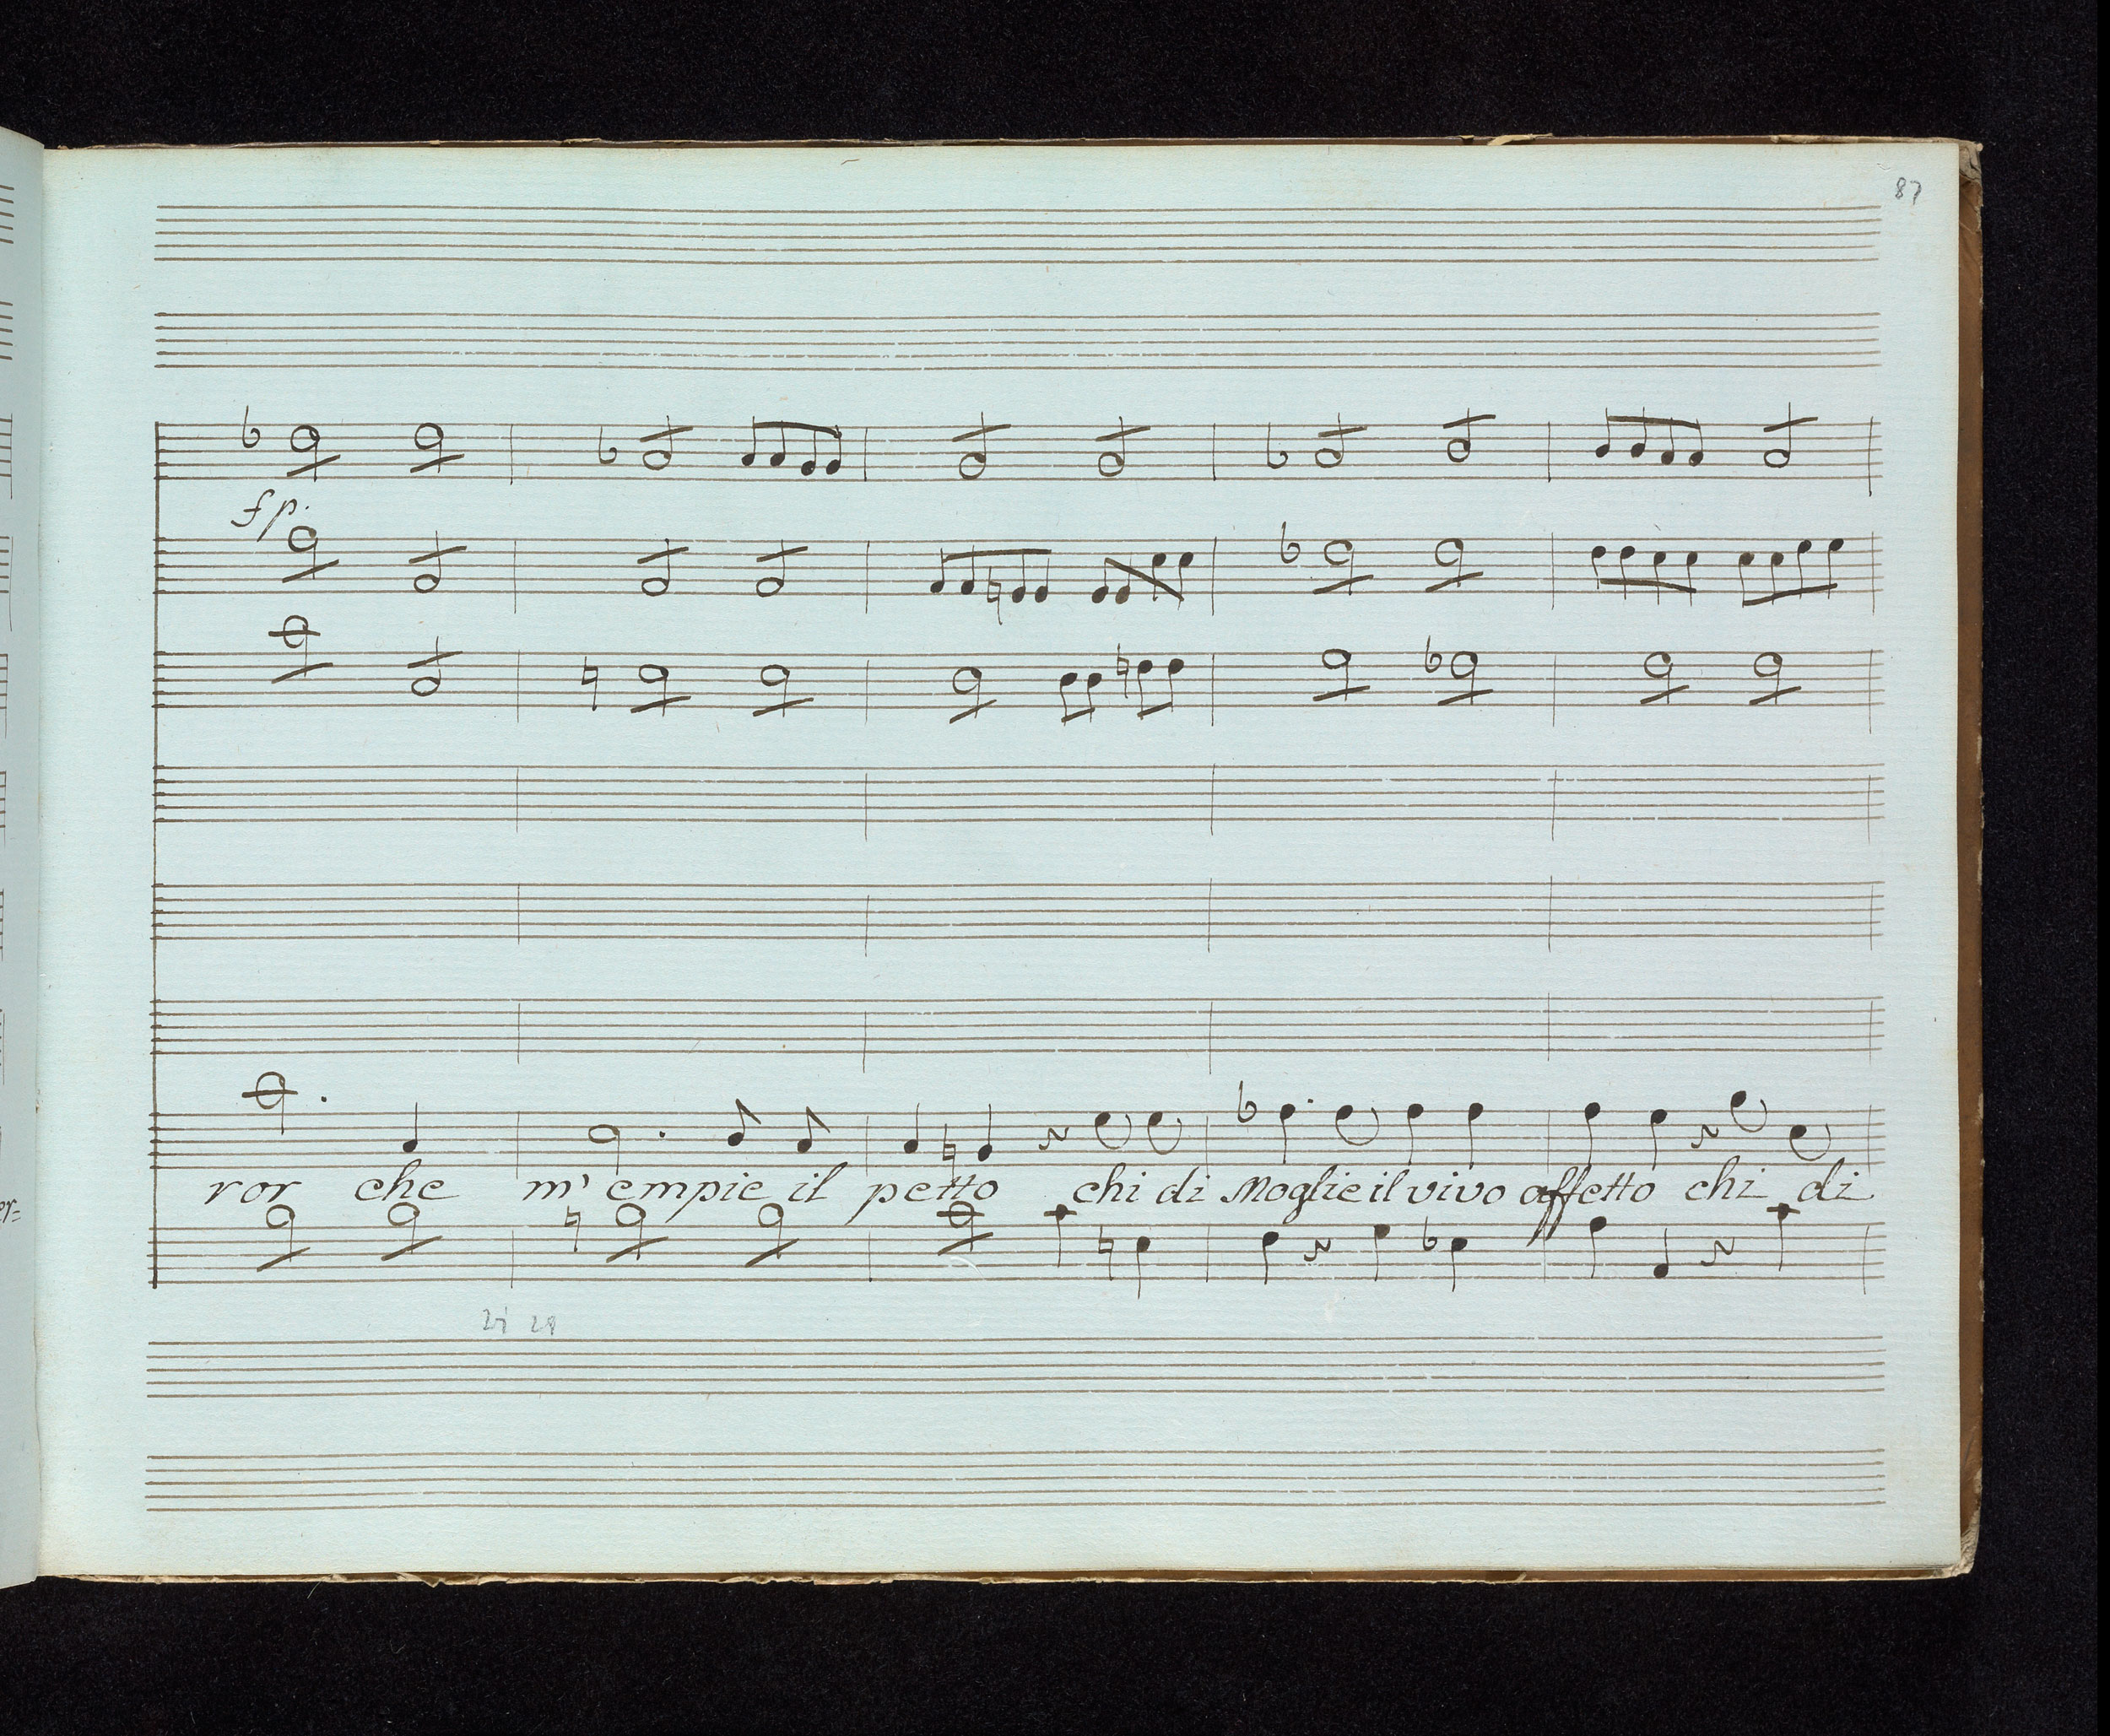 87
fp.
ror che m' empie il petto chi di Moglie il vivo affetto chi di